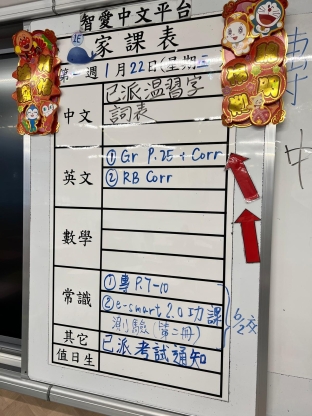 智愛中文平台
家課表
第一週 1月22日(星期
中文 已派溫習字
詞表
英文 ① Gr P.25 + Corr
② RB Corr
數學
常識 ① 專 P.7-10
② e-smart 2.0 功課
(第二冊)
6/2交
其它 已派考試通知
值日生